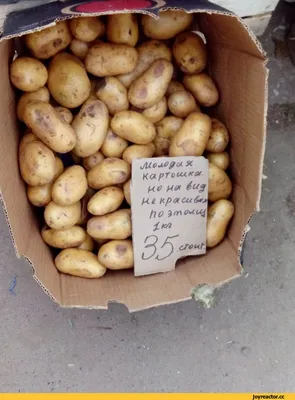 молодая
картошка
но на вид
некрасивая
поэтому
1кг
35 стоит
joyreactor.cc